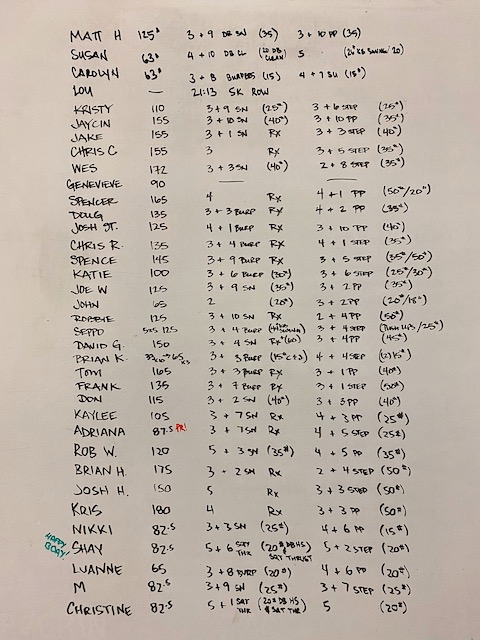 MATT H 125# 3 + 9 DB SN (35) 3 + 10 PP (35)
SUSAN 63# 4 + 10 DB CL (20 DB CLEAN) 5 (20# KB SWING/20)
CAROLYN 63# 3 + 8 BURPEES (15) 4 + 7 SN (15#)
LOU — 21:13 5K ROW
KRISTY 110 3 + 9 SN (25#) 3 + 6 STEP (25#)
JAYCIN 155 3 + 10 SN (40#) 3 + 10 PP (35#)
JAKE 155 3 + 1 SN RX 3 + 3 STEP (40#)
CHRIS C 155 3 RX 3 + 5 STEP (35#)
WES 172 3 + 3 SN (40#) 2 + 8 STEP (35#)
GENEVIEVE 90 — —
SPENCER 165 4 RX 4 + 1 PP (50#/20#)
DOUG 135 3 + 3 BURP RX 4 + 2 PP (35#)
JOSH ST. 125 4 + 1 BURP RX 3 + 10 PP (40#)
CHRIS R. 135 3 + 4 BURP RX 4 + 1 STEP (35#)
SPENCE 145 3 + 9 BURP RX 3 + 5 STEP (35#/50#)
KATIE 100 3 + 6 BURP (30#) 3 + 6 STEP (25#/30#)
JOE W 125 3 + 9 SN (35#) 3 + 2 PP (35#)
JOHN 65 2 (20#) 3 + 2 PP (20#/18#)
ROBBIE 125 3 + 10 SN RX 2 + 4 PP (50#)
SEPPO 5x5 125 3 + 4 BURP 3 + 4 STEP (PUSH UPS/25#)
DAVID G. 150 3 + 4 SN RX (60#) 3 + 4 PP (45#)
BRIAN K. 65 3 + 3 BURP 4 + 4 STEP (2)15#
TOM 165 3 + 3 BURP RX 3 + 1 PP (40#)
FRANK 135 3 + 7 BURP RX 3 + 1 STEP (50#)
DON 115 3 + 2 SN (40#) 3 + 3 PP (40#)
KAYLEE 105 3 + 7 SN RX 4 + 3 PP (25#)
ADRIANA 87.5 PR! 3 + 7 SN RX 4 + 5 STEP (25#)
ROB W. 120 5 + 3 SN (35#) 4 + 5 PP (35#)
BRIAN H. 175 3 + 2 SN RX 2 + 4 STEP (50#)
JOSH H. 150 5 RX 3 + 3 STEP (50#)
KRIS 180 4 RX 3 + 3 PP (50#)
NIKKI 82.5 3 + 3 SN (25#) 4 + 6 PP (15#)
HAPPY BDAY! SHAY 82.5 5 + 6 SAT THR (20# DB HS & SAT THRUST) 5 + 2 STEP (20#)
LUANNE 65 3 + 8 BURP (20#) 4 + 6 PP (20#)
M 82.5 3 + 9 SN (25#) 3 + 7 STEP (25#)
CHRISTINE 82.5 5 + 1 SAT THR (20# DB HS & SAT THR) 5 (20#)